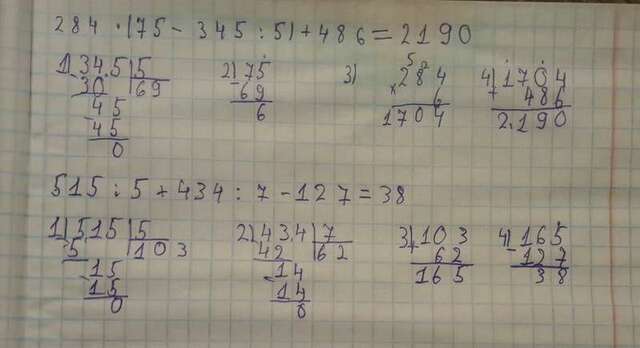 284 · (75 - 345 : 5) + 486 = 2190
1) 34.5 | 5
- 30 | 69
- 45
45
0
2) 75
- 69
6
3) 284
× 6
1704
4) 1704
+ 486
2.190
515 : 5 + 434 : 7 - 127 = 38
1) 5.15 | 5
- 5 | 103
- 15
15
0
2) 43.4 | 7
- 42 | 62
- 14
14
0
3) 103
+ 62
165
4) 165
- 127
38